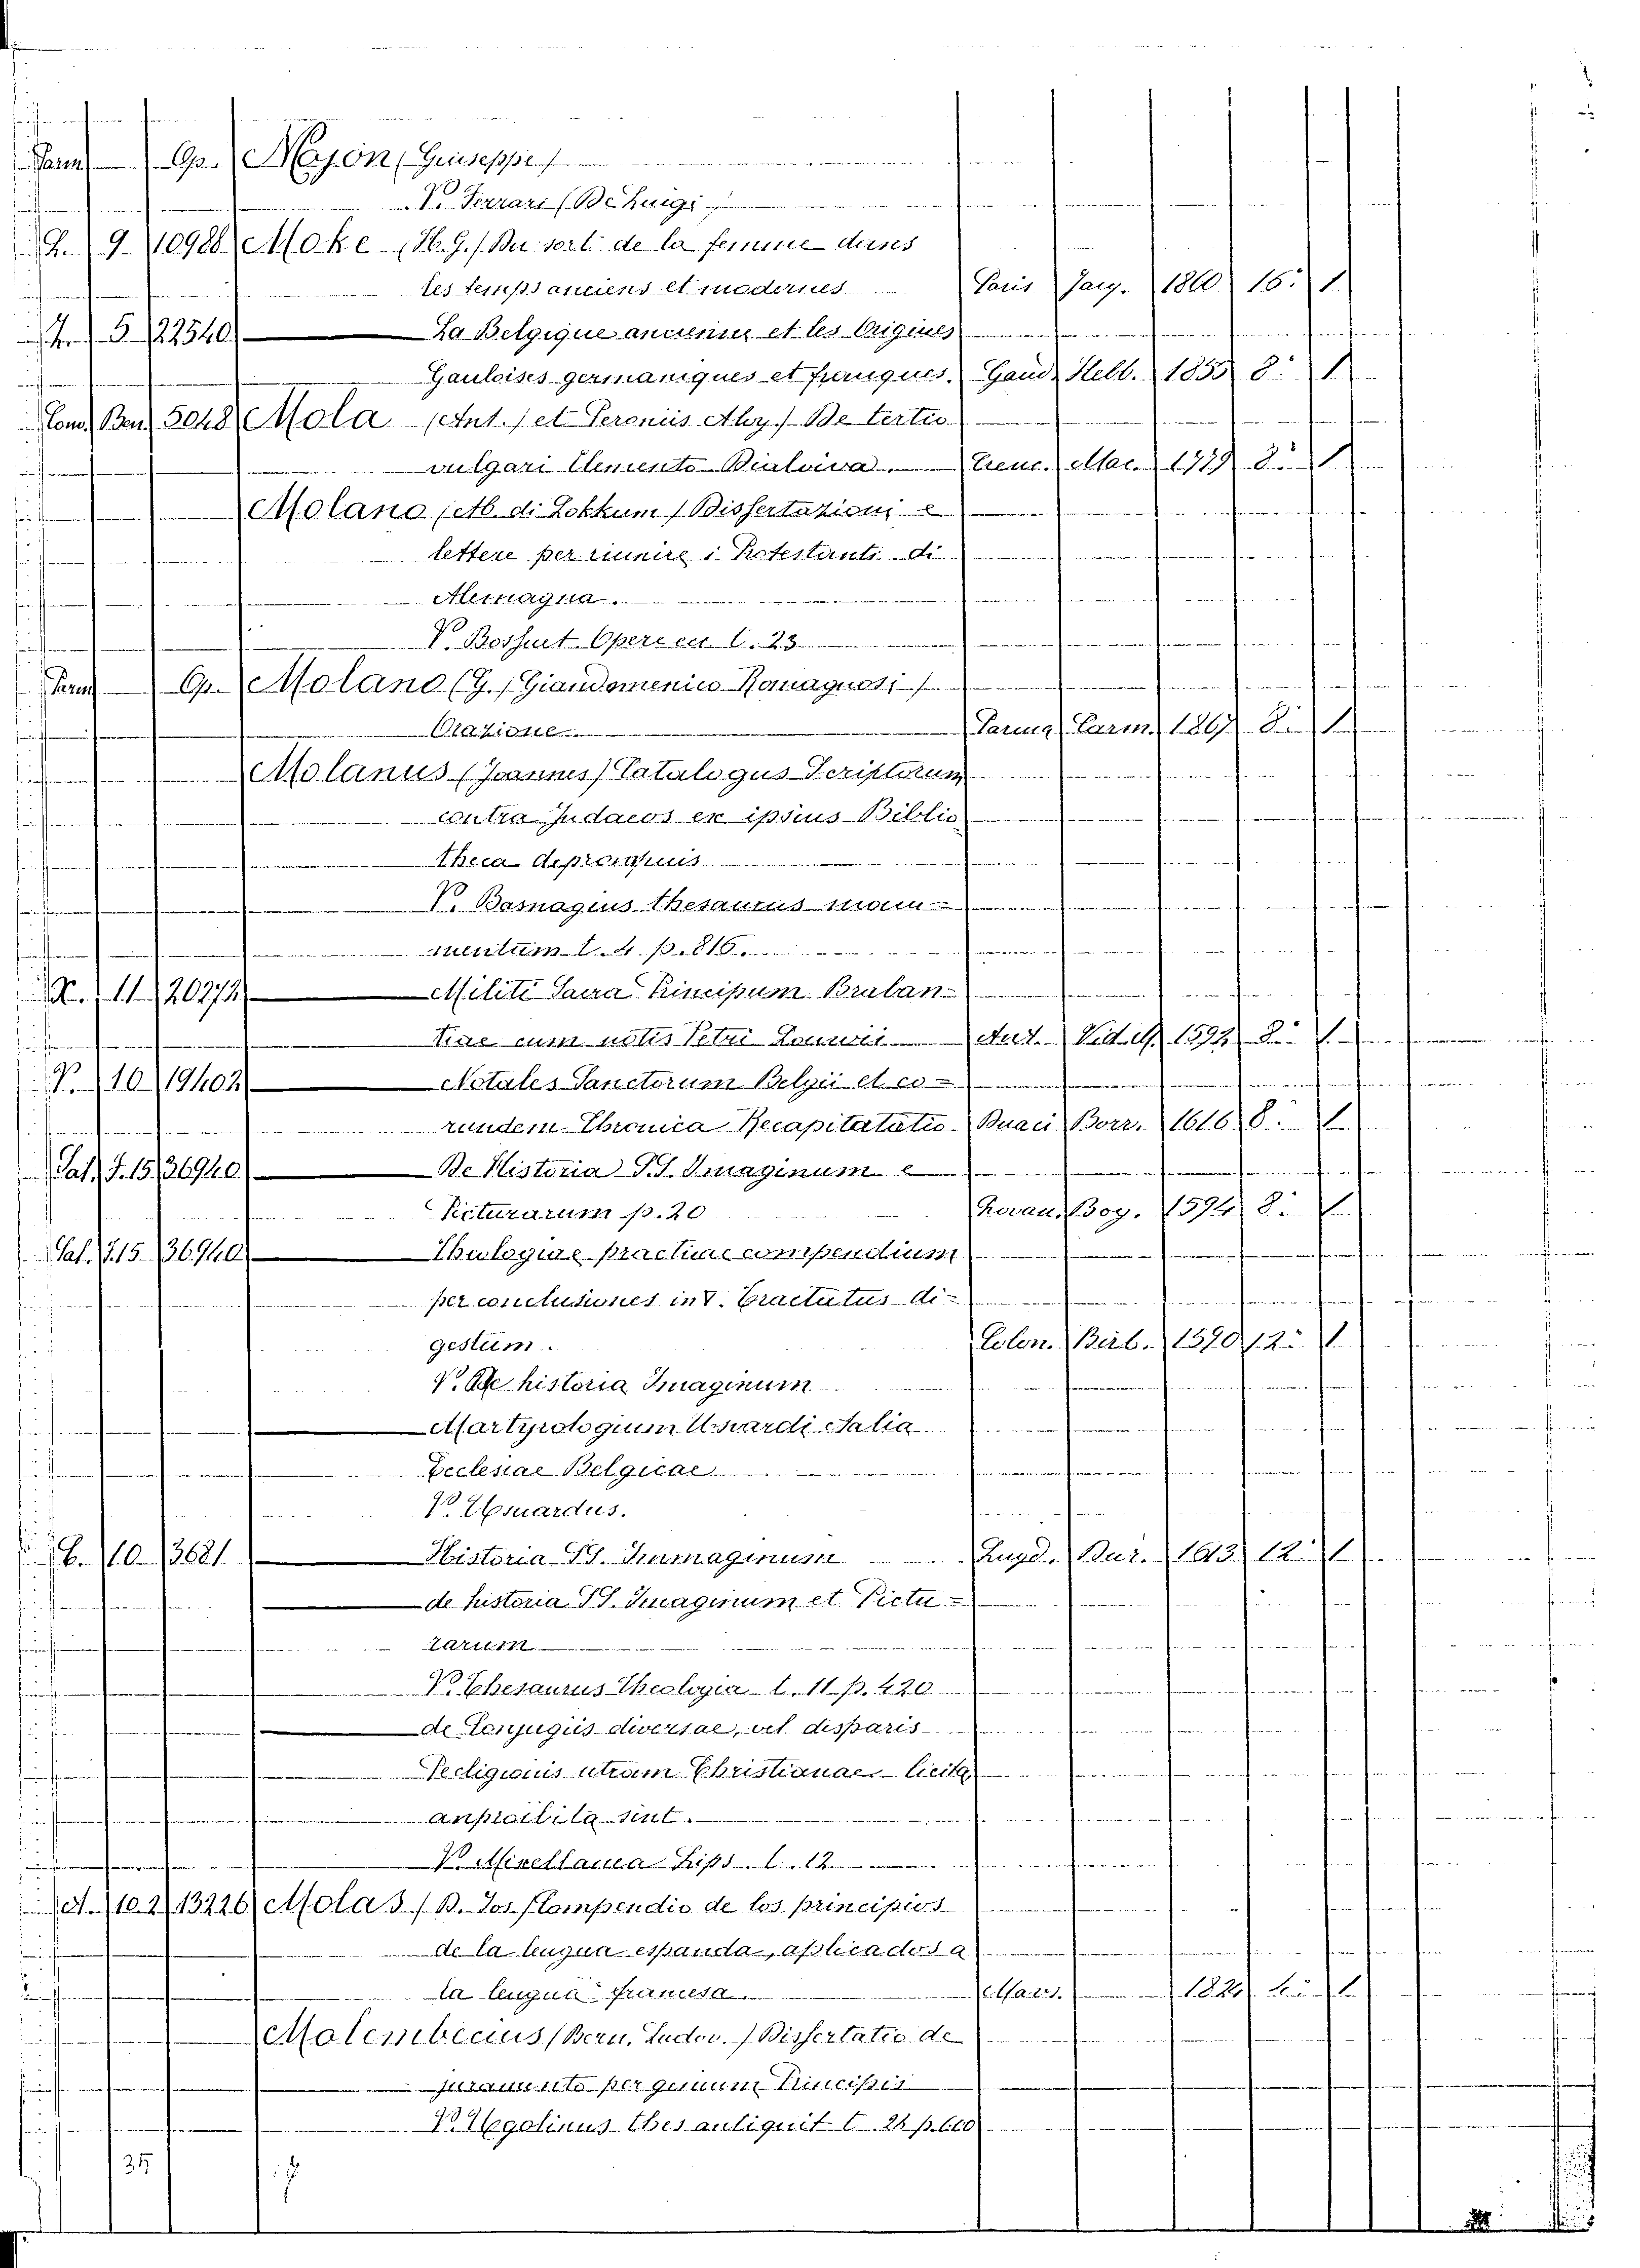 Parm Op. Mojon (Giuseppe)
V. Ferrari (De Luigi
Z. 9. 10988 Moke (H. G.) Du sort de la femme dans
les temps anciens et modernes Paris Jacq. 1860 16: 1
Z. 5 22540 La Belgique ancienne et les Origines
Gauloises germaniques et franques. Gand Hebb. 1855 8: 1
Com. Ben. 5048 Mola (Ant. / et Aloy.) De tertio
vulgari Elemento Mac. 1779 8: 1
Molano (Ab. di Lokkum) Dissertazioni e
lettere per riunire i Protestanti di
Alemagna.
V. Bossuet Opere t. 23
Parm Op. Molano (G.) Giandomenico Romagnosi
Orazione Parma Carm. 1867 8: 1
Molanus (Joannes) Catalogus Scriptorum
contra Judaeos ex ipsius Biblio
theca depromptus
V. Basnagius thesaurus monu=
mentum t. 4. p. 816.
X. 11 20272 Militi Sacra Principum Braban=
tiae cum notis Petri Ant. 1592 8: 1
V. 10 19402 Natales Sanctorum Belgii et eo=
rundem Chronica Recapitatatio Duaci Borr. 1616 8: 1
Sal. J. 15 36940 De Historia S.S. Imaginum e
Picturarum p. 20 Lovan. Bog. 1594 8: 1
Sal. J. 15 36940 Theologiae practicae compendium
per conclusiones in V. Tractatus di=
gestum. Colon. Birb. 1590 12: 1
V. De historia Imaginum
Martyrologium Usuardi Italia
Ecclesiae Belgicae
V. Usuardus.
E. 10 3681 Historia SS. Immaginum Lugd. Dur. 1613 12: 1
de historia SS. Imaginum et Pictu=
rarum
V. Thesaurus Theologia t. 11 p. 420
de Conjugiis diversae, vel disparis
Religionis utrum Christianae licita
an sint.
V. Miscellanea Lips. t. 12
A. 10.2 13226 Molas (D. Jos.) Compendio de los principios
de la lengua espanda, aplicados a
la lengua francesa 1
Molembecius (Bern. Ludov.) Dissertatio de
juramento per genium Principis
V. Ugolinus thes antiquit t. 24 p. 600
35